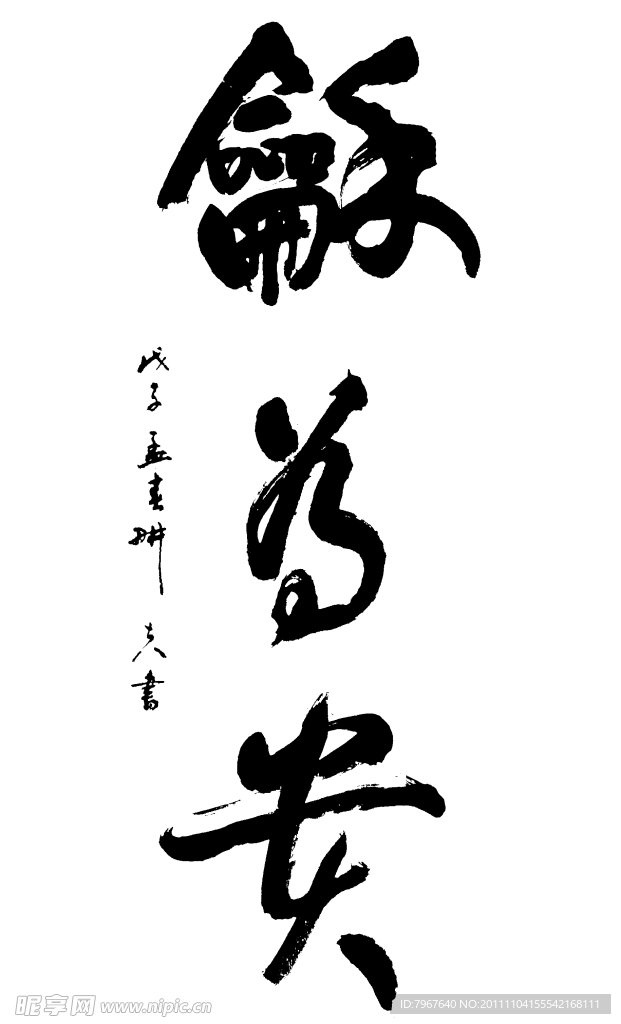 龢為貴
戊子孟春耕夫書
昵享网 www.nipic.cn
ID:7967640 NO:20111104155542168111